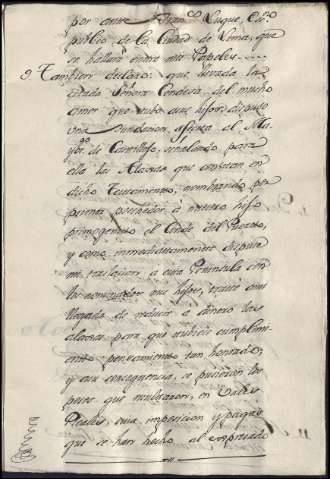 por ante Juan Luque, Esno
publico de la Ciudad de Lima, que
se hallara entre mis Papeles
9 Tambien declaro: que llevada la
citada Señora Condesa del mucho
amor que tubo a sus hijos, dispuso
una fundacion afecta al Ma
yorgo de Castillejo, señalando para
ella las Alhajas que constan en
dicho Testamento, nombrando por
primer posehedor à nuestro hijo
primogenito el Conde del Puerto,
y como inmediatamente dispuse
mi traslacion a esta Peninsula con
los nominados mis hijos, traté con
llegada de reducir a dinero las
alhajas para que tubiese cumplimi
ento pensamiento tan honrado;
y en su consequencia, se pusieron los
pesos que resultaron, en Vales
Reales, cuia imposicion y pagas
que se han hecho al expresado